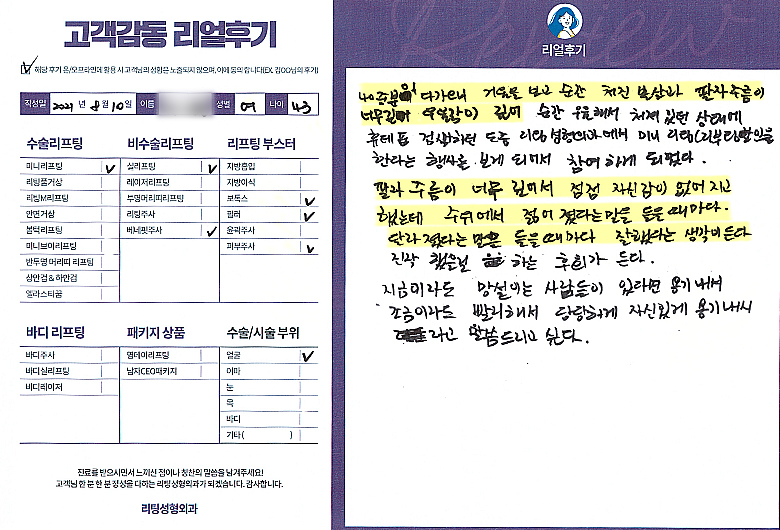 고객감동 리얼후기
해당 후기 온/오프라인에 활용 시 고객님의 성함은 노출되지 않으며, 이에 동의 합니다(EX. 김OO님의 후기)
작성일 2021 년 8 월 10 일 이름 성별 여 나이 43
수술리프팅 비수술리프팅 리프팅 부스터
미니리프팅 실리프팅 지방흡입
리팅풀거상 레이저리프팅 지방이식
리팅M리프팅 두영머리띠리프팅 보톡스
안면거상 리팅주사 필러
볼턱리프팅 베네핏주사 윤곽주사
미니브이리프팅 피부주사
반두영 머리띠 리프팅
상안검&하안검
엘라스티꿈
바디 리프팅 패키지 상품 수술/시술 부위
바디주사 원데이리프팅 얼굴
바디실리프팅 남자CEO패키지 이마
바디레이저 눈
목
바디
기타( )
진료를 받으시면서 느끼신 점이나 칭찬의 말씀을 남겨주세요!
고객님 한 분 한 분 정성을 다하는 리팅성형외과가 되겠습니다. 감사합니다.
리팅성형외과
Review
리얼후기
40중분이 다가오니 거울을 보고 순간 쳐진 볼살과 팔자주름이
너무 깊어 순간 우울해서 쳐져 있던 상태에
휴대폰 검색하던 도중 리팅성형외과에서 미니리팅(리부팅할인을
한다는 행사를 보게 되면서 참여하게 되었다.
팔자주름이 너무 깊어서 점점 자신감이 없어지고
했는데 주위에서 젊어졌다는 말을 들을때마다.
달라졌다는 말은 들을때마다 잘했다는 생각이 든다
진작 했을걸 하는 후회가 든다.
지금이라도 망설이는 사람들이 있다면 용기내서
조금이라도 빨리해서 당당하게 자신있게 용기내시
라고 말씀드리고 싶다.